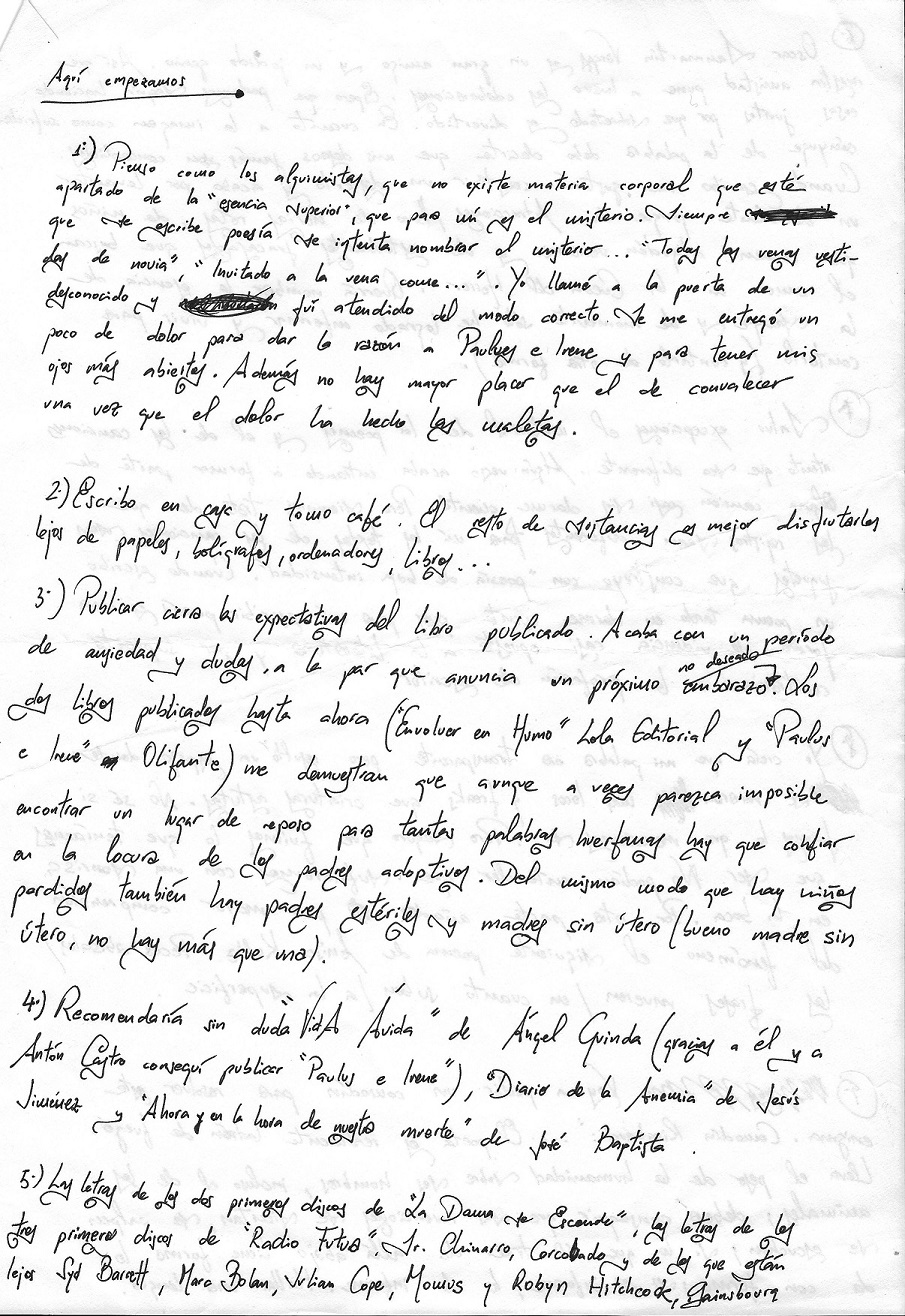 Aquí empezamos
1º) Pienso como los alquimistas, que no existe materia corporal que esté
apartado de la "esencia superior", que para mí es el misterio. Siempre
que se escribe poesía se intenta nombrar el misterio... "Todas las venas vesti-
das de novia", "Invitado a la vena come...". Yo llamé a la puerta de un
desconocido y fuí atendido del modo correcto. Se me entregó un
poco de dolor para dar la razón a Paulus e Irene y para tener mis
ojos más abiertos. Además no hay mayor placer que el de convalecer
una vez que el dolor ha hecho las maletas.
2º) Escribo en casa y tomo café. El resto de sustancias es mejor disfrutarlas
lejos de papeles, bolígrafos, ordenadores, libros...
3º) Publicar cierra las expectativas del libro publicado. Acaba con un período
de ansiedad y dudas, a la par que anuncia un próximo embarazo no deseado. Los
dos libros publicados hasta ahora ("Envolver en Humo" Lola Editorial y "Paulus
e Irene" Olifante) me demuestran que aunque a veces parezca imposible
encontrar un lugar de reposo para tantas palabras huerfanas hay que confiar
en la locura de los padres adoptivos. Del mismo modo que hay niños
perdidos también hay padres estériles y madres sin útero (bueno madre sin
útero, no hay más que una).
4º) Recomendaría sin duda "Vida Ávida" de Ángel Guinda (gracias a él y a
Antón Castro conseguí publicar "Paulus e Irene"), "Diario de la Anemia" de Jesús
Jiménez y "Ahora y en la hora de nuestra muerte" de José Baptista.
5º) Las letras de los dos primeros discos de "La Dama se Esconde", las letras de los
tres primeros discos de "Radio Futura", Sr. Chinarro, Corcobado y de los que están
lejos Syd Barrett, Marc Bolan, Julian Cope, Momus y Robyn Hitchcock, Gainsbourg